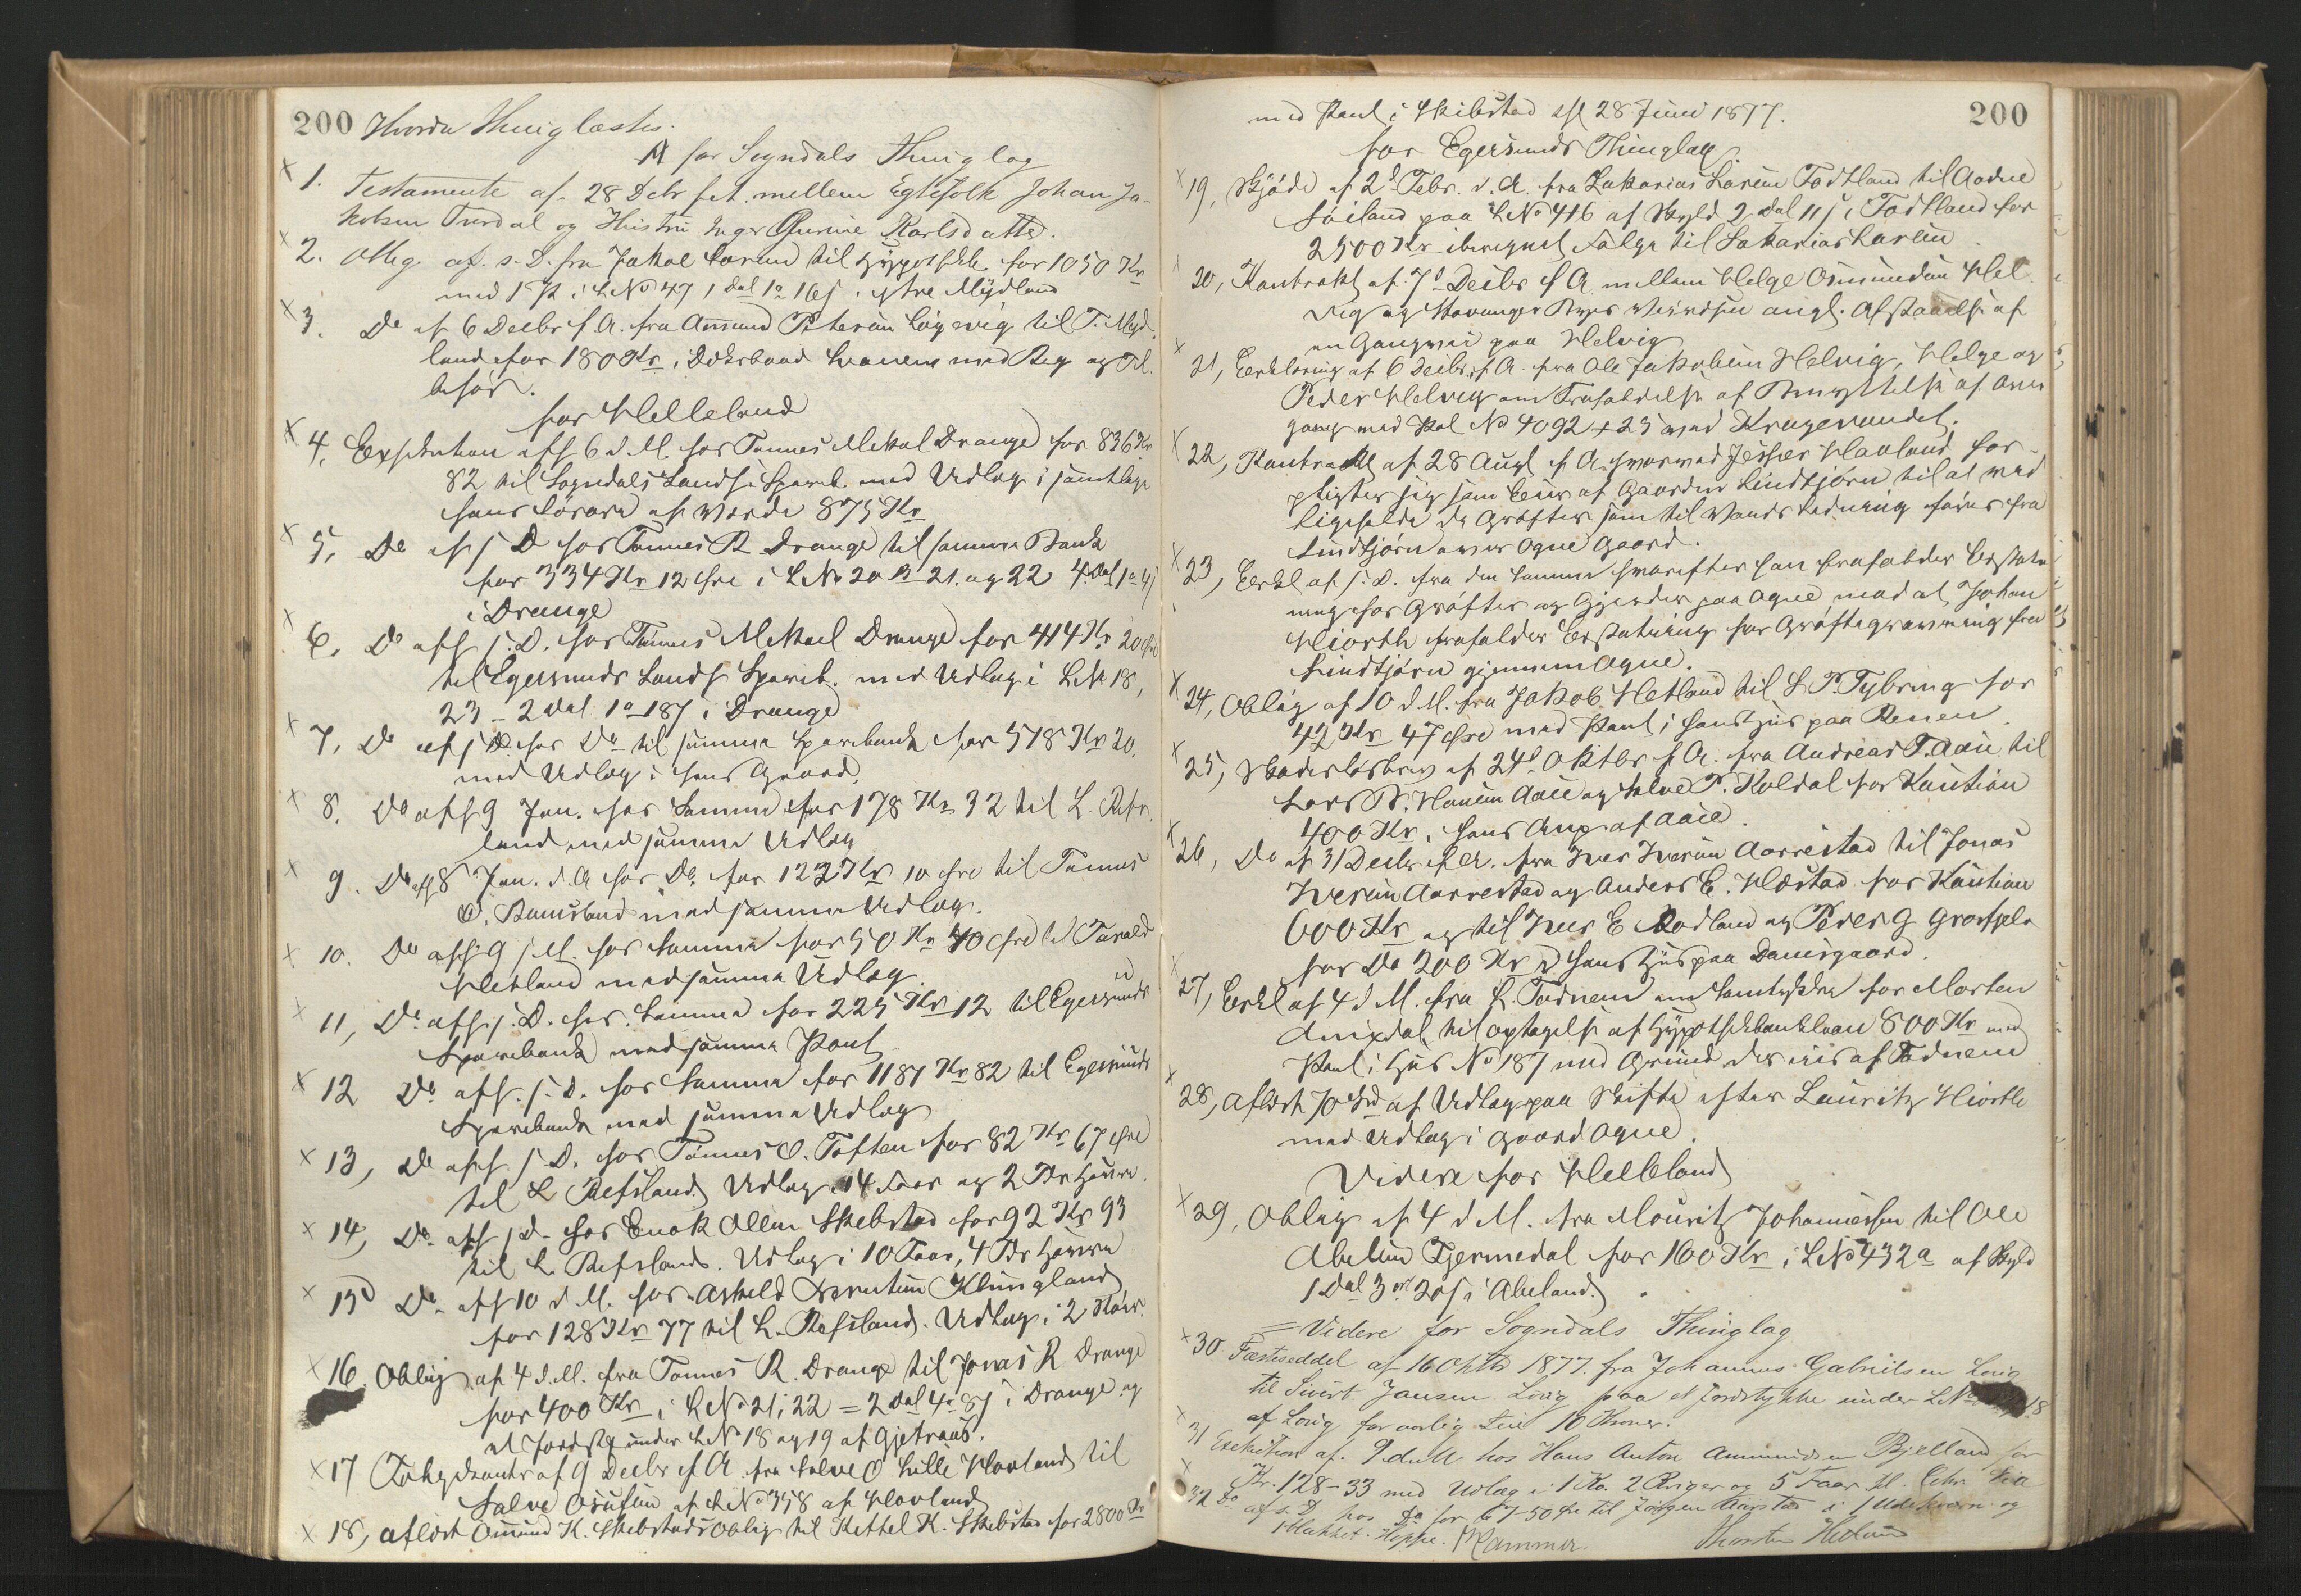 200 Hvorda Thinglæstes.
A for Sogndals Thinglag
1. Testamente af 28 Debr f.A. mellem Egtefolk Johan Ja-
kobsen Tvedal og Hustru Inger Gurine Karlsdatter.
2. Oblig. af s. D. fra Jakob til Hypothkb for 1050 Kr
med 1 Pr i LNo 47 1 Dal 1 o 16 s i ytre Mydland
3. Do af 6 Decbr f.A. fra Amund Petersen Løgevig til T. Myd-
land for 180 Kr i Dæksbaad med Reg og Til-
behør.
for Helleland
4. Exekution afh 6 d M. hos Tønnes Mikal Drange for 836 Kr
82 til Sogndals Landss Spareb. med Udlæg i samtlige
hans Løsøre af Værdi 875 Kr
5, Do af s D hos Tønnes R Drange til samme Bank
for 334 Kr 12 Øre i LNo 20 B 21. og 22 4 Dal 1 o 4 s
i Drange
6, Do afh s. D. hos Tønnes Mikael Drange for 414 Kr 20 Øre
til Egersunds Lands Spareb. med Udlæg i LNo 18,
23 – 2 Dal 1 o 18 s i Drange
7, Do af s D hos Do til samme Sparebank for 518 Kr 20.
med Udlæg i hans Gaard.
8. Do afh 9 Jan. hos Samme for 178 Kr 32 til L. Refs-
land med samme Udlæg
9. Do afh 8 Jan. d.A hos Do for 122 Kr 10 Øre til Tønnes
O. Ramsland med samme Udlæg.
10. Do afh 9 s M. hos Samme for 50 Kr 40 Øre til Tarald
Hetland med samme Udlæg
11, Do afh. s. D. hos Samme for 225 Kr 12 til Egersunds
Sparebank med samme Pant
12 Do afh. s. D. hos Samme for 1187 Kr 82 til Egersunds
Sparebank med samme Udlæg
13, Do afh s D. hos Tønnes O. Toften for 82 Kr 67 Øre
til L Refsland Udlæg i 14 Faar og 2 Tdr Havre.
14, Do afh s D. hos Enok Ollsen Skebstad for 92 Kr 93
til L. Refsland. Udlæg i 10 Faar, 4 Tdr Havre
15 Do afh 10 d M. hos Askeld Klungland
for 128 Kr 77 til L. Refsland. Udlæg i 2 Køer.
16. Oblig af 4 d. M. fra Tønnes R. Drange til Jonas R Drange
for 400 Kr i LNo 21, 22 = 2 Dal 4 o 8 s i Drange og
et Jordst under LNo 18 og 19 af Gjetraus.
17 af 9 Decbr f A fra Salve O Lille Hovland til
Salve af LNo 358 af Hovland
18, aflæst Omund K. Skebstads Oblig til Kettel K. Skebstad for 2800 Kr
med Pant i Skibstad afl 28 Juni 1877. 200
for Egersunds Thinglag.
19, Skjøde af 2d Febr. d. A. fra Zakarias Larsen Fodtland til Aadne
paa LNo 416 af Skyld 2 Dal 11 s i Fodtland for
2500 Kr iberegnet Følge til Zakarias Larsen
20, Kontrakt af 7d Decbr f A mellem Helge Omundsen Hel-
vig og Stavanger angl. Afstaaelse af
en Gangvei paa Helvig
21, Erklæring af 6 Decbr f A. fra Ole Jakobsen Helvig, Helge og
Peder Helvig om Frafaldelse af af Over-
gang med Pæl No 4092 + 25 ved Kragevandet.
22, Kontrakt af 28 Augt f A. hvorved Jesper Havland for-
pligter sig som Eier af Gaarden Lindtjørn til at ved-
ligeholde de Grøfter som til Vands Ledning føres fra
Lindtjørn over Ogne Gaard.
23, Erkl af s. D. fra den samme hvorefter han frafalder Erstat-
ning for Grøfter og Gjerder paa Ogne mod at Johan
Hiorth frafalder Erstatning for Grøftegravning fra
Lindtjørn gjennem Ogne.
24, Oblig af 10 d. M. fra Jakob Hetland til L P. Tybring for
42 Kr 47 Øre med Pant i hans Hus paa Renen.
25, Skadesløsbrev af 24d Oktbr f A. fra Andreas T. Aase til
Lars B. Hansen Aase og Salve P. Koldal for Kaution
400 Kr. i hans Anp. af Aase.
26, Do af 31 Decbr f A. fra Iver Iversen Aarrestad til Jonas
Iversen Aarrestad og Anders E. Hæstad for Kaution
600 Kr og til Iver E Rodland og Peder G
for Do 200 Kr i hans Hus paa Damsgaard.
27, Erkl af 4 d M. fra L. Fodnem om Samtykke for Morten
til Optagelse af Hypothekbanklaan 800 Kr med
Pant i Hus No 187 med Grund der eies af Fodnem
28, aflæst af Udlæg paa Skifte efter Lauritz Hiorth
med Udlæg i Gaard Ogne.
Videre for Helleland
29, Oblig af 4 d M. fra Mouritz Johannessen til Ole
Tjermedal for 160 Kr i LNo 432a af Skyld
1 Dal 3 o 20 s i Abeland.
= Videre for Sogndals Thinglag
30. Fæsteseddel af 16 Oktbr 1877 fra Johannes Gabrielsen Løvig
til Sivert Jansen Løvig paa et Jordstykke under LNo 18
af Løvig for aarlig Leie 10 Kroner.
31 Exekution af. 9 d M hos Hans Anton Ammundsen Bjelland for
Kr. 128-33 med Udlæg i 1 Ko 2 Kviger og 5 Faar
32 Do af s. D. hos Do for 67-50 Øre til Jørgen Aarstad i 1 og
1 blakket Hoppe. Kammer Thorsten Hetland